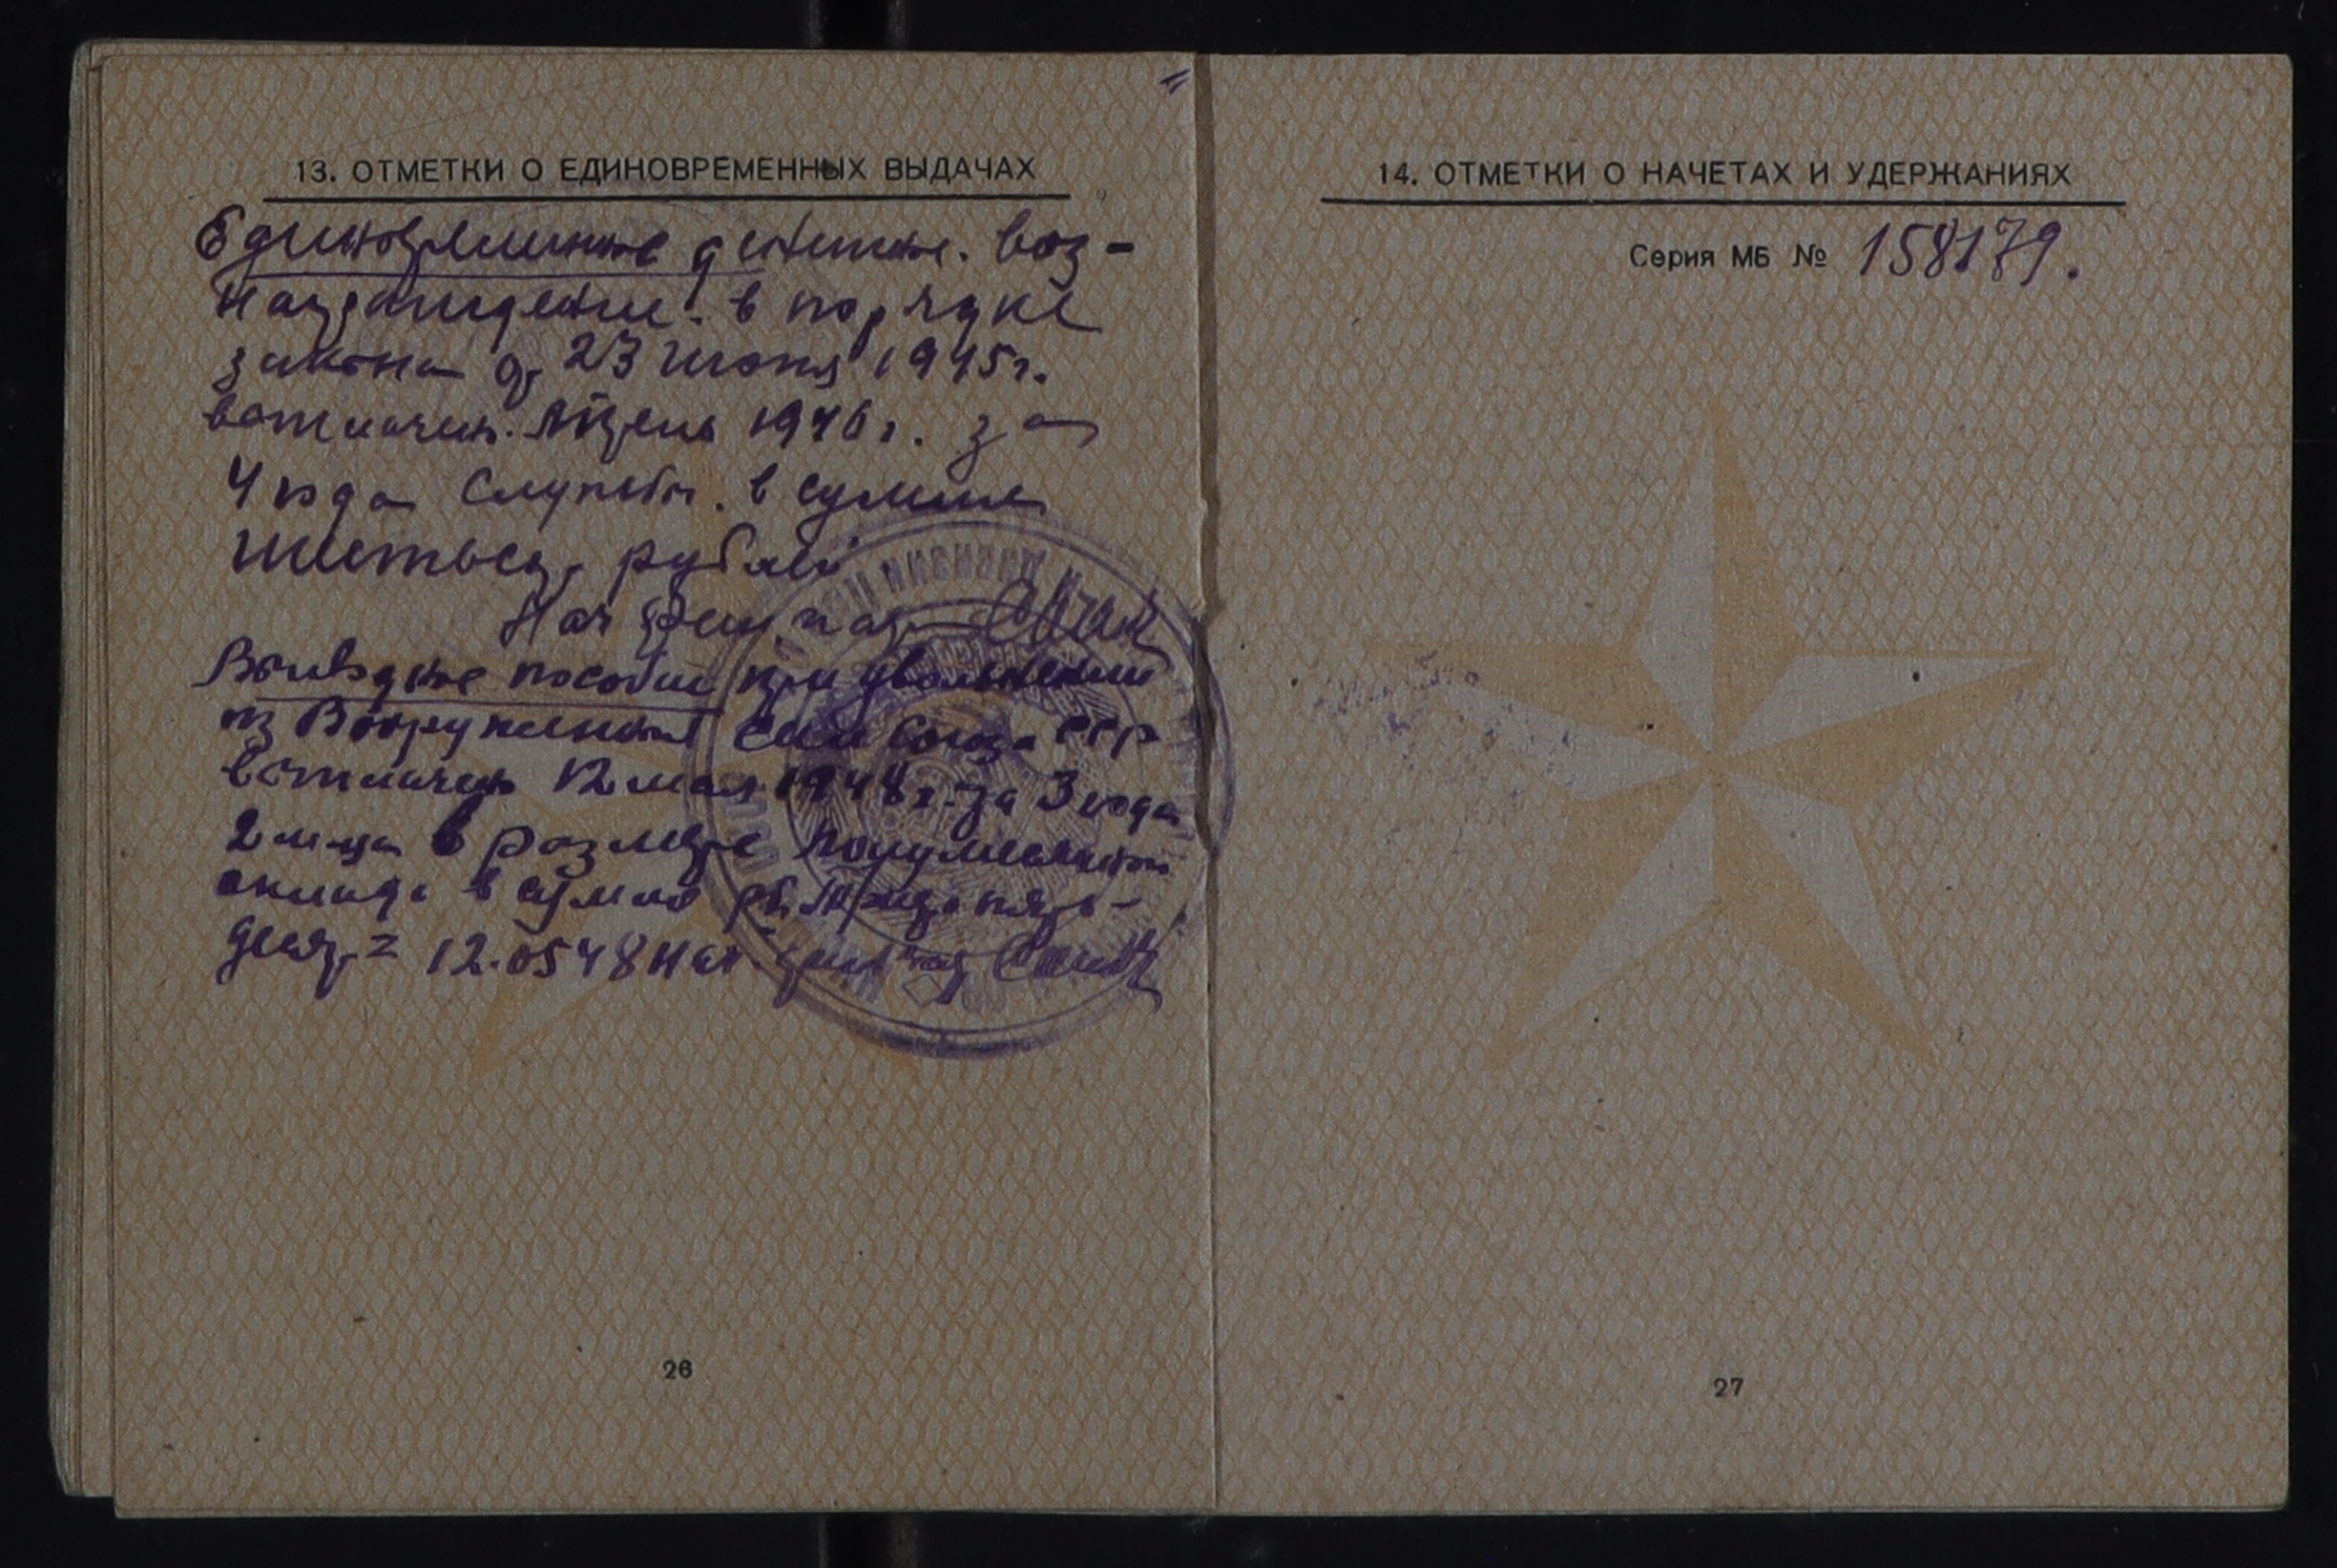 13. ОТМЕТКИ О ЕДИНОВРЕМЕННЫХ ВЫДАЧАХ
Единовременное денежн. воз-
награждение в порядке
закона от 23 июня 1945г.
выплачен. Апрель 1946г. за
4 года службы. в сумме
рублей
Нач фин час
Выходное пособие при увольнении
из Вооруженных сил Союза ССР
выплачен 12 мая 1948г. за 3 года
2 м-ца в размере полумесячного
оклада в сумме пять-
десят = 12.05 48 Нач фин час
26
14. ОТМЕТКИ О НАЧЕТАХ И УДЕРЖАНИЯХ
Серия МБ № 158179.
27